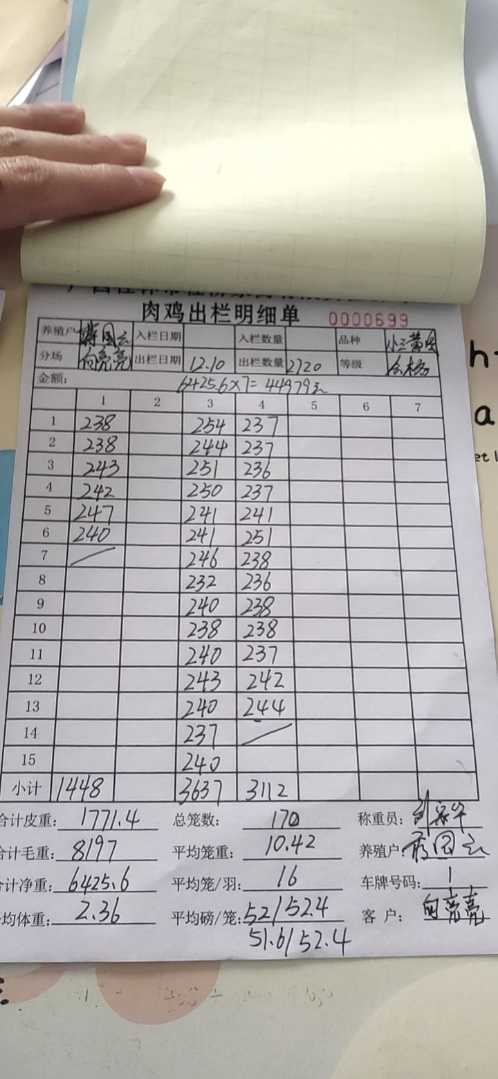 肉鸡出栏明细单 0000699
养殖户 蒋国云 入栏日期 入栏数量 品种
分场 向亮亮 出栏日期 12.10 出栏数量 2720 等级 合格
金额: 6425.6×7=44979元
1 2 3 4 5 6 7
1 238 254 237
2 238 244 237
3 243 251 236
4 242 250 237
5 247 241 241
6 240 241 251
7 246 238
8 232 236
9 240 238
10 238 238
11 240 237
12 243 242
13 240 244
14 237
15 240
小计 1448 3637 3112
合计皮重: 1771.4 总笼数: 170 称重员:
合计毛重: 8197 平均笼重: 10.42 养殖户: 蒋国云
合计净重: 6425.6 平均笼/羽: 16 车牌号码: 1
均体重: 2.36 平均磅/笼: 52/52.4 客户: 向亮亮
51.6/52.4